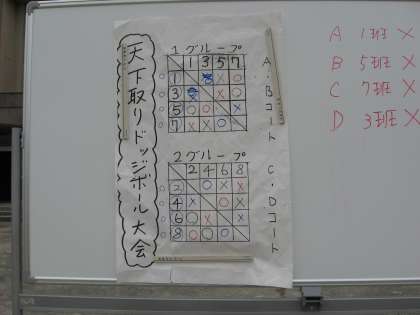 天下取りドッジボール大会
1グループ
1 3 5 7
1 × ○
3 × ○
5 ○ ○ ×
7 × × ○
A・Bコート
2グループ
2 4 6 8
2 ○ × ○
4 × ○ ×
6 ○ × ×
8 ○ ○ ○
C・Dコート
A 1班 ×
B 5班 ×
C 7班 ×
D 3班 ×